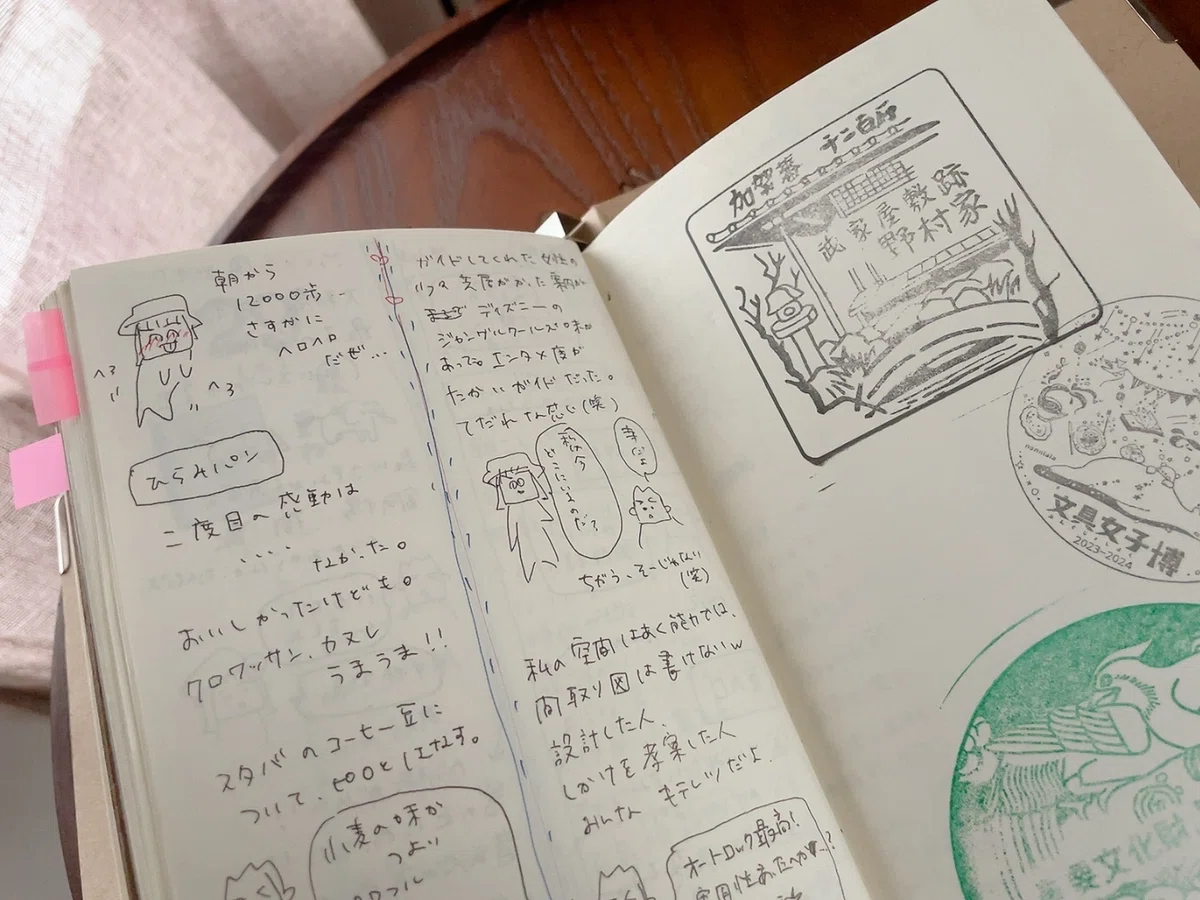 朝から
12000歩
さすがに
ヘロヘロ
だぜ…
ヘろ
ヘろ
ひらみパン
二度目の感動は
なかった。
おいしかったけども。
クロワッサン、カヌレ
うまうま!!
スタバのコーヒー豆に
ついて、モロモロとはなす。
小麦の味が
つよい
ガイドしてくれた女性の
ディズニーの
ジャングルクルーズ味が
あって。エンタメ度が
たかいガイドだった。
てだれな感じ(笑)
私は今
どこにいるのだ?
ちがう、そーじゃない
(笑)
私の空間はあく能力では、
間取り図は書けないw
設計した人、
しかけを考案した人
みんな キテレツだよ。
オートロック最高!
加賀藩 千二百石
武家屋敷跡
野村家
文具女子博
2023-2024
要文化財